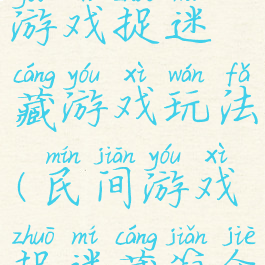 游戏捉迷
cáng yóu xì wán fǎ
藏游戏玩法
mín jiān yóu xì
(民间游戏
zhuō mí cáng jiǎn jiè